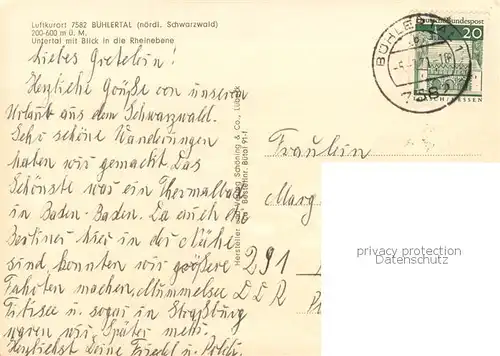 Luftkurort 7582 BÜHLERTAL (nördl. Schwarzwald)
200-600 m Ü. M.
Untertal mit Blick in die Rheinebene
Liebes Gretelein!
Herzliche Grüße von unserem
Urlaub aus dem Schwarzwald.
Sehr schöne Wanderungen
haben wir gemacht. Das
Schönste war ein Thermalbad
in Baden-Baden. Da auch die
Berliner hier in der Nähe
sind, konnten wir größere
Fahrten machen, Mummelsee
Titisee u. sogar in Straßburg
waren wir. Später mehr.
Herzlichst Deine Friedl u.
Hersteller: Schöning & Co., Lübeck
Bestellnr. Bütal 91-f
BÜHLERTAL 1
7582
Deutsche Bundespost
20
LORSCH/HESSEN
Fräulein
Marg
291
DDR
privacy protection
Datenschutz